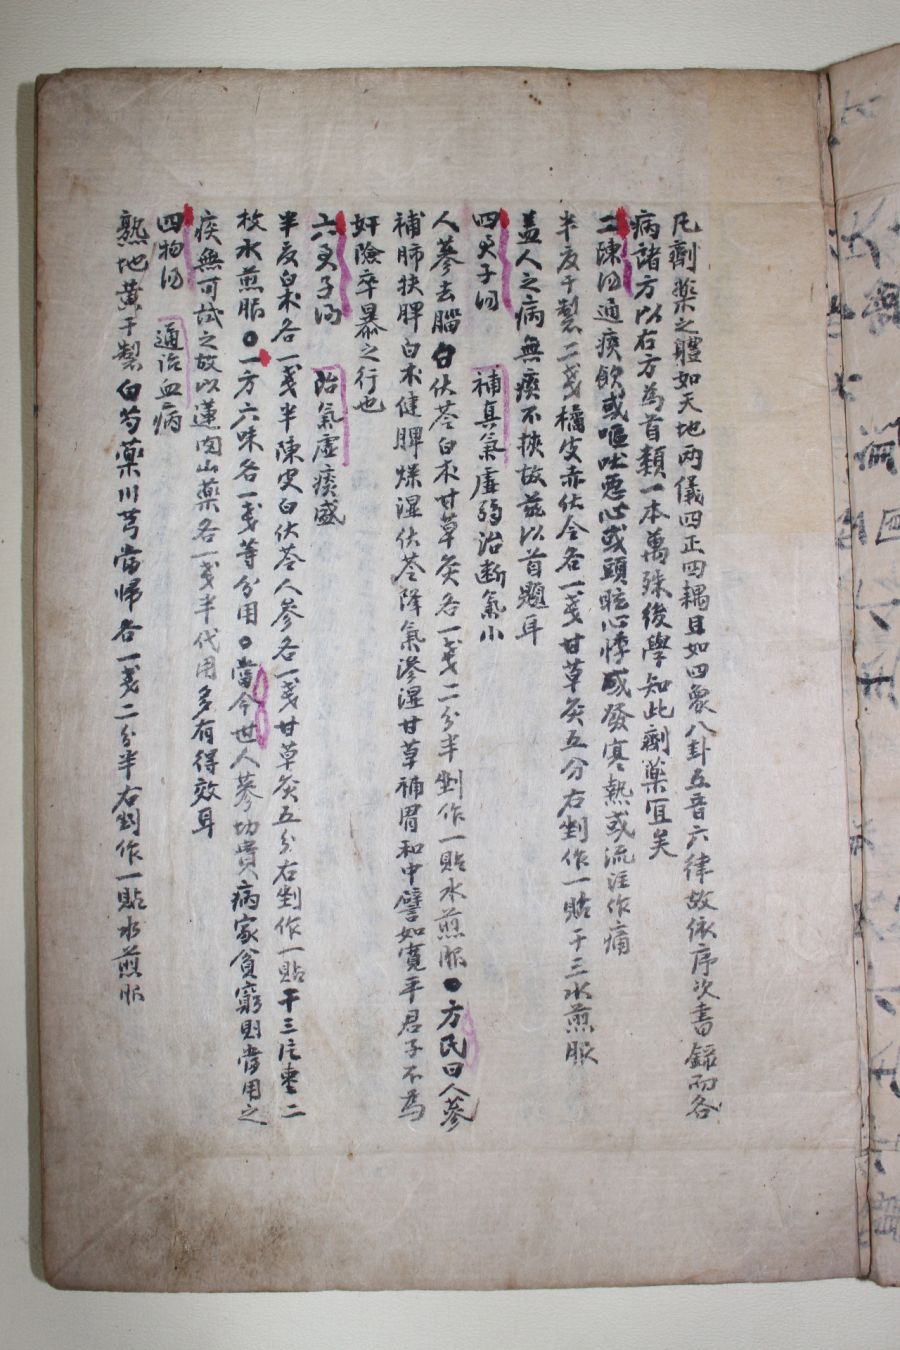 凡劑藥之體如天地兩儀四正四耦且如四象八卦五音六律故依序次書錄而各
病諸方以右方為首類一本萬殊後學知此劑藥宜矣
二陳湯通痰飲或嘔吐惡心或頭眩心悸或發寒熱或流注作痛
半夏干製二戔橘皮赤伏令各一戔甘草灸五分右剉作一貼干三水煎服
盖人之病無痰不挾故玆以首題耳
四君子湯 補真氣虛弱治断氣小
人蔘去腦白伏苓白朮甘草灸各一戔二分半剉作一貼水煎服○方氏曰人蔘
補肺扶脾白朮健脾燥湿伏苓降氣滲湿甘草補胃和中譬如寬平君子不為
奸險卒暴之行也
六君子湯 治氣虛痰盛
半夏白朮各一戔半陳皮白伏苓人參各一戔甘草灸五分右剉作一貼干三片棗二
枚水煎服○一方六味各一戔等分用○當今世人蔘切貴病家貧窮則當用之
疾無可試之故以蓮肉山藥各一戔半代用多有得效耳
四物湯 通治血病
熟地黃干製白芍藥川芎當帰各一戔二分半右剉作一貼水煎服